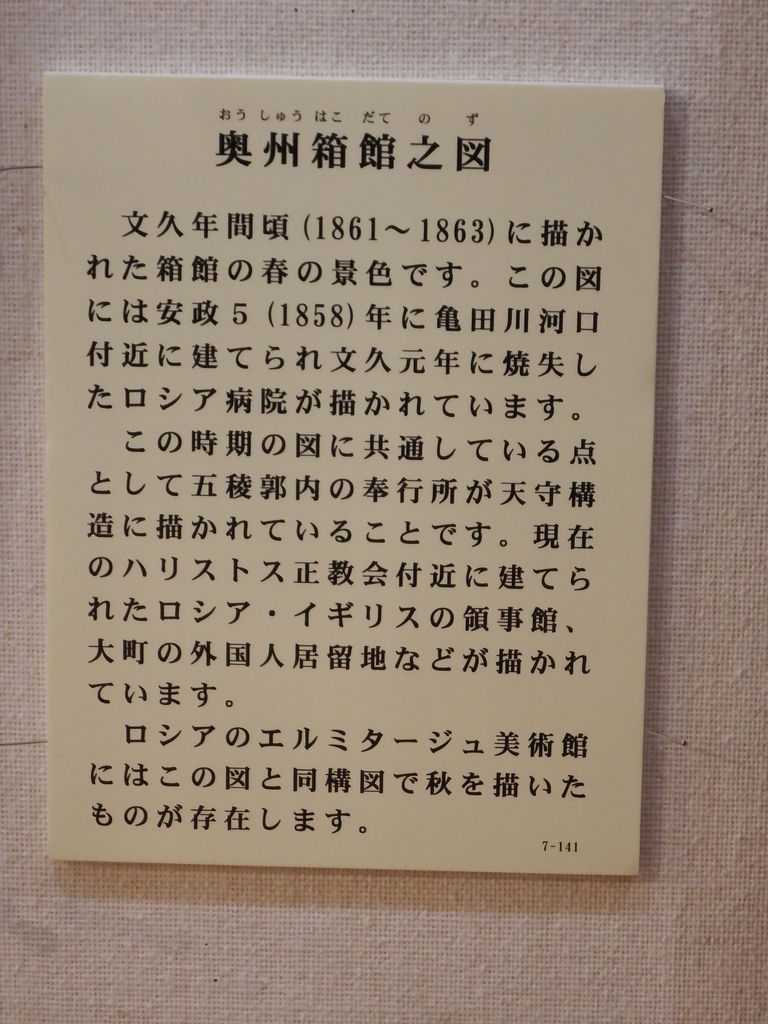 おうしゅうはこだてのず
奥州箱館之図
文久年間頃(1861〜1863)に描か
れた箱館の春の景色です。この図
には安政5(1858)年に亀田川河口
付近に建てられ文久元年に焼失し
たロシア病院が描かれています。
この時期の図に共通している点
として五稜郭内の奉行所が天守構
造に描かれていることです。現在
のハリストス正教会付近に建てら
れたロシア・イギリスの領事館、
大町の外国人居留地などが描かれ
ています。
ロシアのエルミタージュ美術館
にはこの図と同構図で秋を描いた
ものが存在します。
7-141